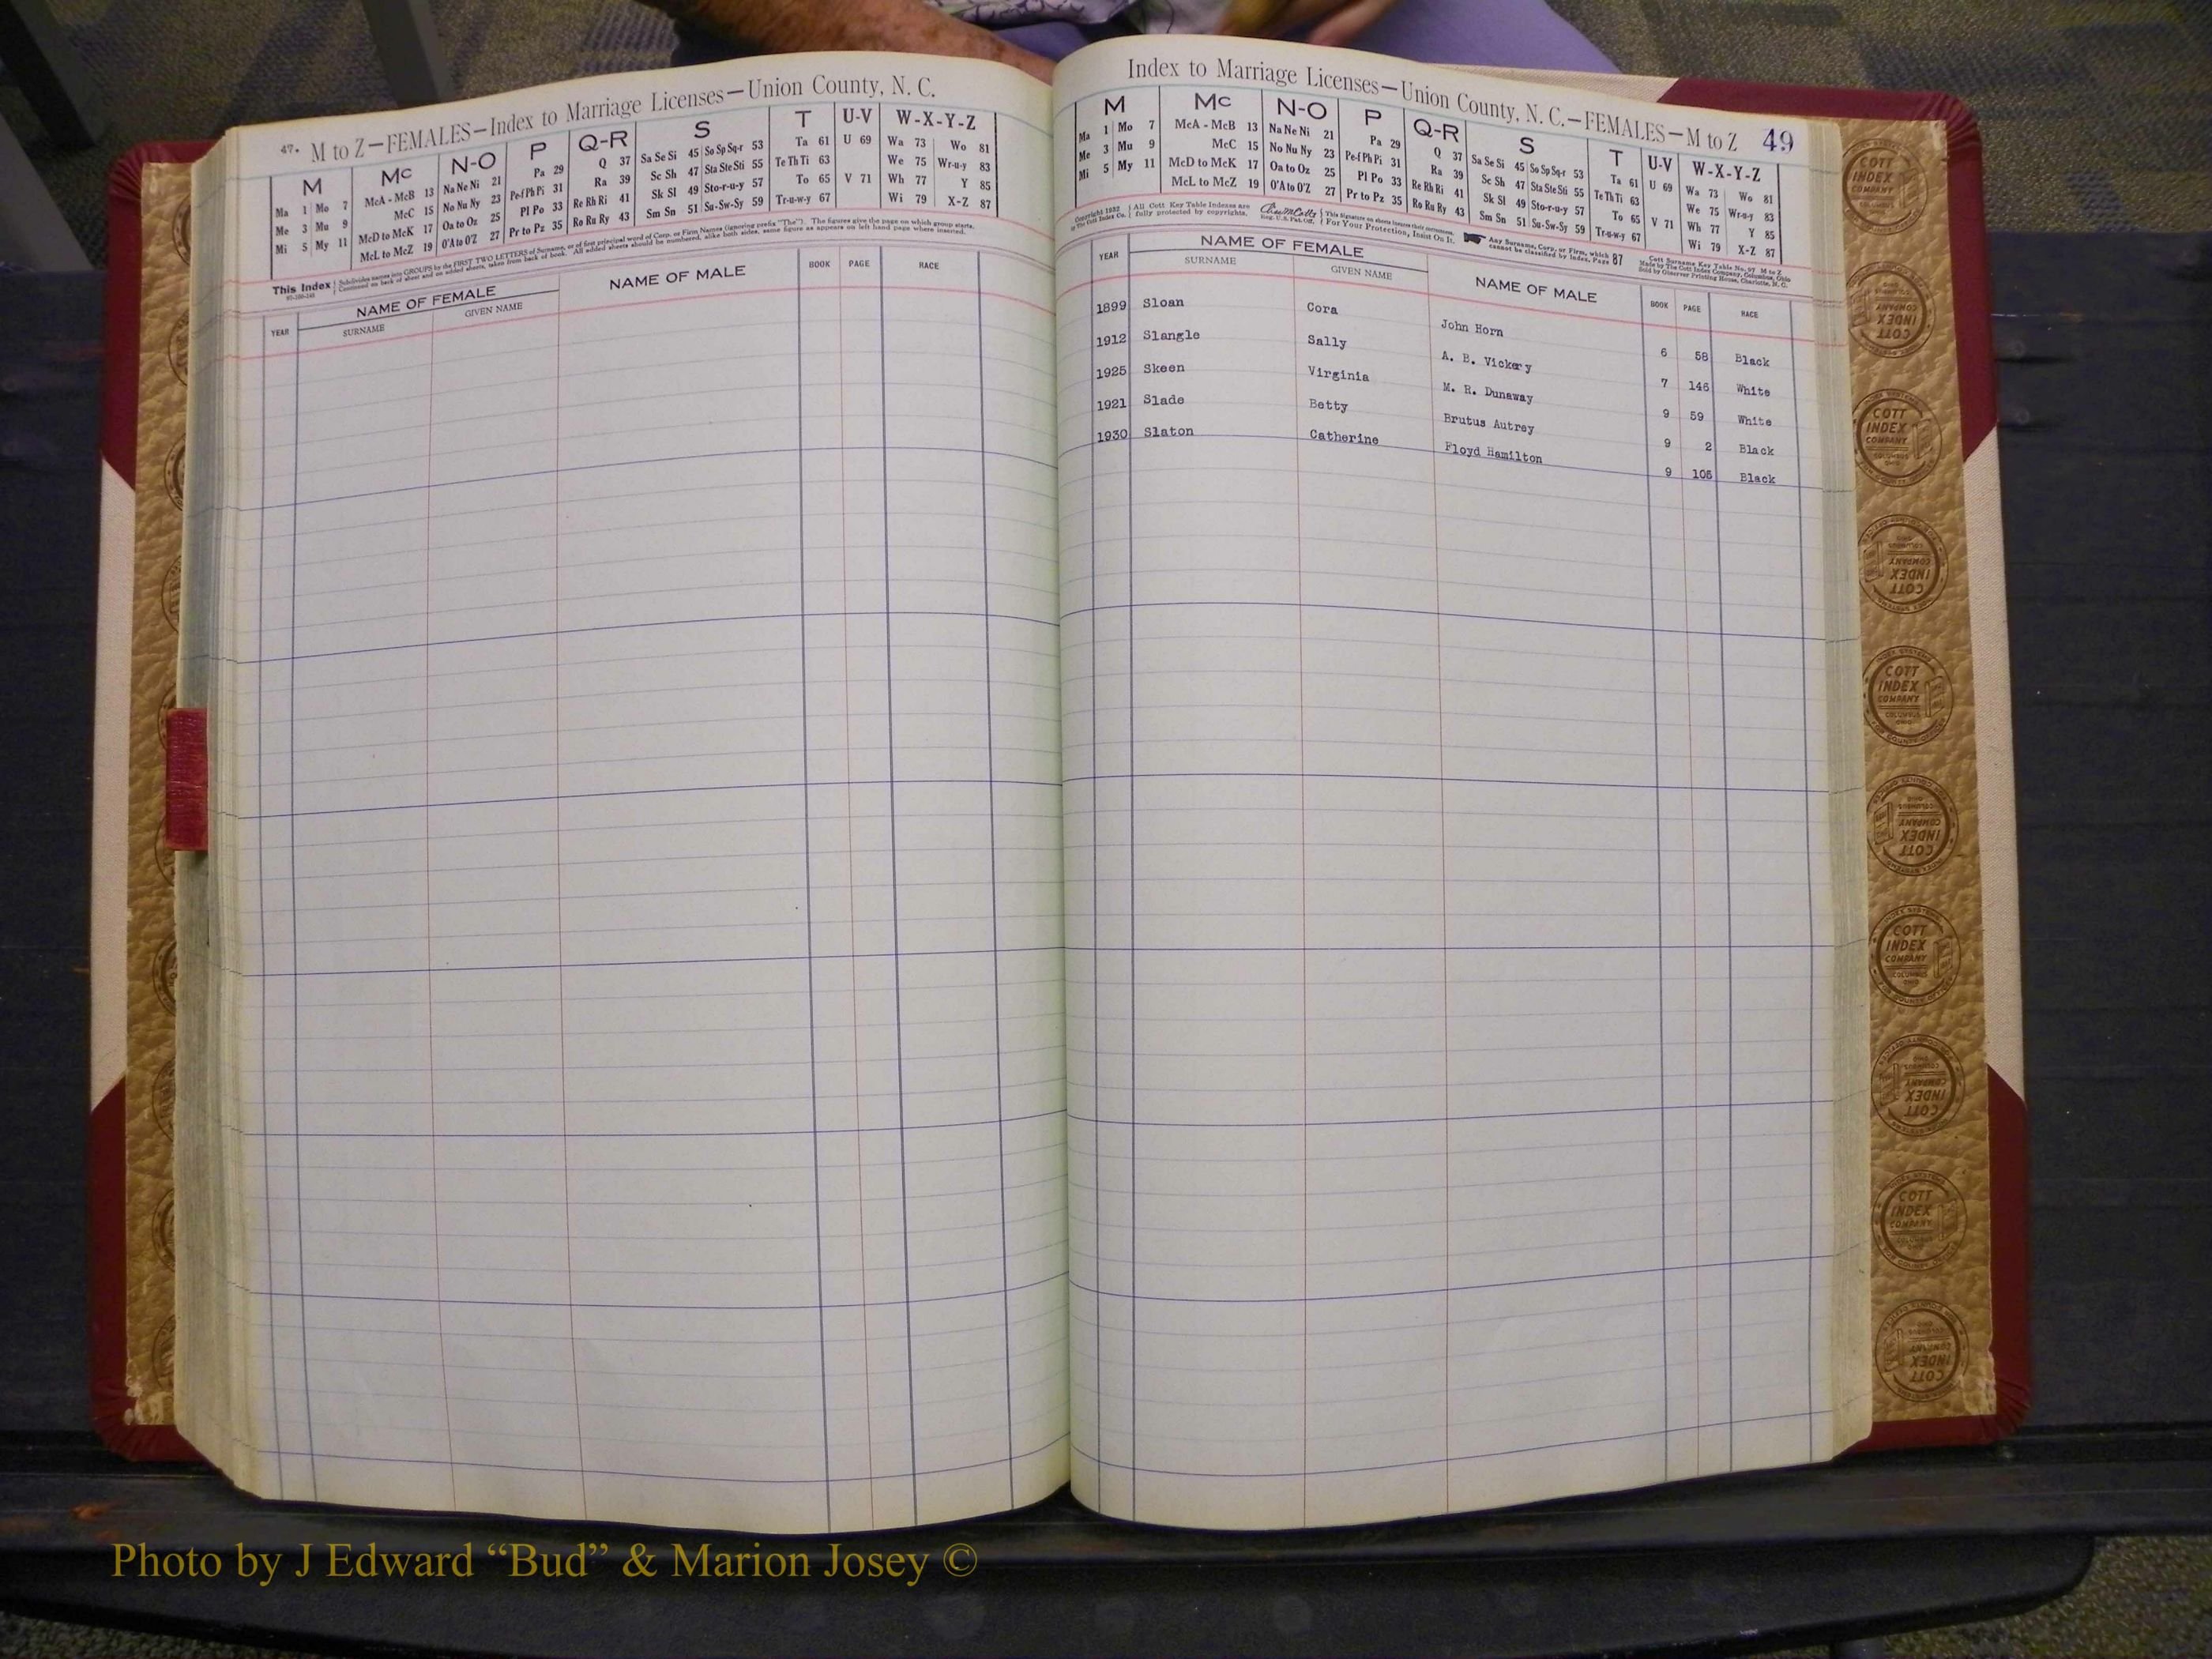 47. M to Z—FEMALES—Index to Marriage Licenses—Union County, N. C.
M Mc N-O P Q-R S T U-V W-X-Y-Z
Ma 1 Mo 7 McA - McB 13 Na Ne Ni 21 Pa 29 Q 37 Sa Se Si 45 So Sp Sq-r 53 Ta 61 U 69 Wa 73 Wo 81
Me 3 Mu 9 McC 15 No Nu Ny 23 Pe-f Ph Pi 31 Ra 39 Sc Sh 47 Sta Ste Sti 55 Te Th Ti 63 We 75 Wr-u-y 83
Mi 5 My 11 McD to McK 17 Oa to Oz 25 Pl Po 33 Re Rh Ri 41 Sk Sl 49 Sto-r-u-y 57 To 65 V 71 Wh 77 Y 85
McL to McZ 19 O'A to O'Z 27 Pr to Pz 35 Ro Ru Ry 43 Sm Sn 51 Su-Sw-Sy 59 Tr-u-w-y 67 Wi 79 X-Z 87
This Index { Subdivides names into GROUPS by the FIRST TWO LETTERS of Surname, or of first principal word of Corp. or Firm Names (ignoring prefix "The"). The figures give the page on which group starts.
Continued on back of sheet and on added sheets, taken from back of book. All added sheets should be numbered, alike both sides, same figure as appears on left hand page where inserted.
YEAR NAME OF FEMALE NAME OF MALE BOOK PAGE RACE
SURNAME GIVEN NAME
Index to Marriage Licenses—Union County, N. C.—FEMALES—M to Z 49
M Mc N-O P Q-R S T U-V W-X-Y-Z
Ma 1 Mo 7 McA - McB 13 Na Ne Ni 21 Pa 29 Q 37 Sa Se Si 45 So Sp Sq-r 53 Ta 61 U 69 Wa 73 Wo 81
Me 3 Mu 9 McC 15 No Nu Ny 23 Pe-f Ph Pi 31 Ra 39 Sc Sh 47 Sta Ste Sti 55 Te Th Ti 63 We 75 Wr-u-y 83
Mi 5 My 11 McD to McK 17 Oa to Oz 25 Pl Po 33 Re Rh Ri 41 Sk Sl 49 Sto-r-u-y 57 To 65 V 71 Wh 77 Y 85
McL to McZ 19 O'A to O'Z 27 Pr to Pz 35 Ro Ru Ry 43 Sm Sn 51 Su-Sw-Sy 59 Tr-u-w-y 67 Wi 79 X-Z 87
All Cott Key Table Indexes are fully protected by copyrights. For Your Protection, Insist On It. Any Surname, Corp. or Firm, which cannot be classified by Index, Page 87
Cott Surname Key Table No. 97 M to Z
Made by The Cott Index Company, Columbus, Ohio
Sold by Observer Printing House, Charlotte, N. C.
YEAR NAME OF FEMALE NAME OF MALE BOOK PAGE RACE
SURNAME GIVEN NAME
1899 Sloan Cora John Horn 6 58 Black
1912 Slangle Sally A. B. Vickery 7 146 White
1925 Skeen Virginia M. R. Dunaway 9 59 White
1921 Slade Betty Brutus Autrey 9 2 Black
1930 Slaton Catherine Floyd Hamilton 9 105 Black
COTT INDEX COMPANY
Photo by J Edward “Bud” & Marion Josey ©